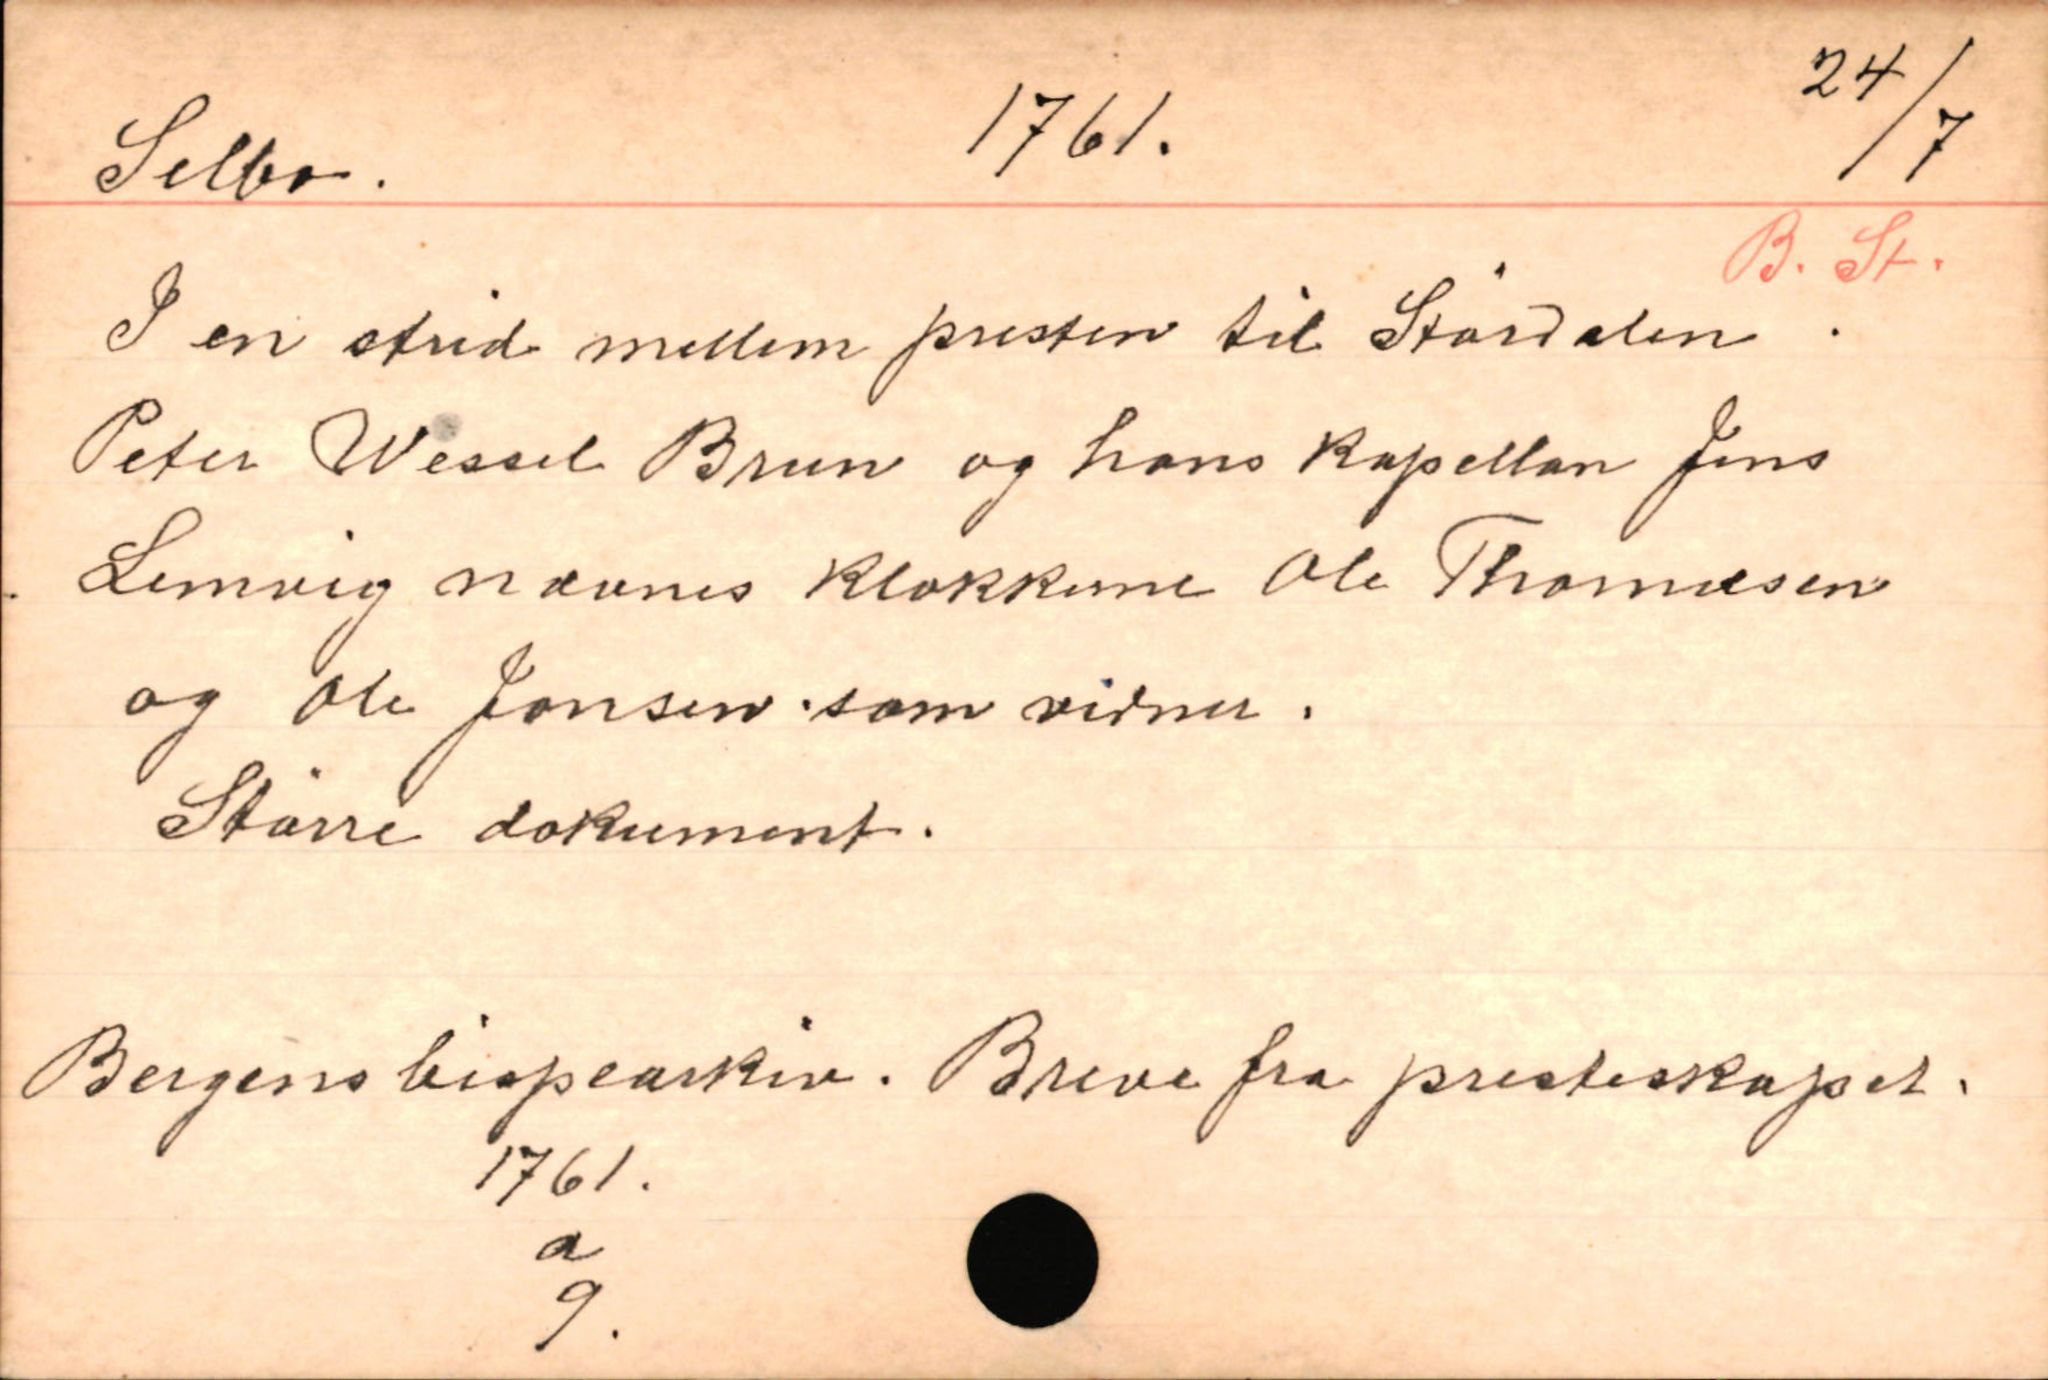 Selbo. 1761. 24/7
B. St.
I en strid mellem presten til Størdalen
Peter Wessel Brun og hans kapellan Jens
Lemvig nævnes klokkerne Ole Thomæsen
og Ole Jonsen som vidner.
Større dokument.
Bergens bispearkiv. Breve fra presteskapet.
1761.
a
9.